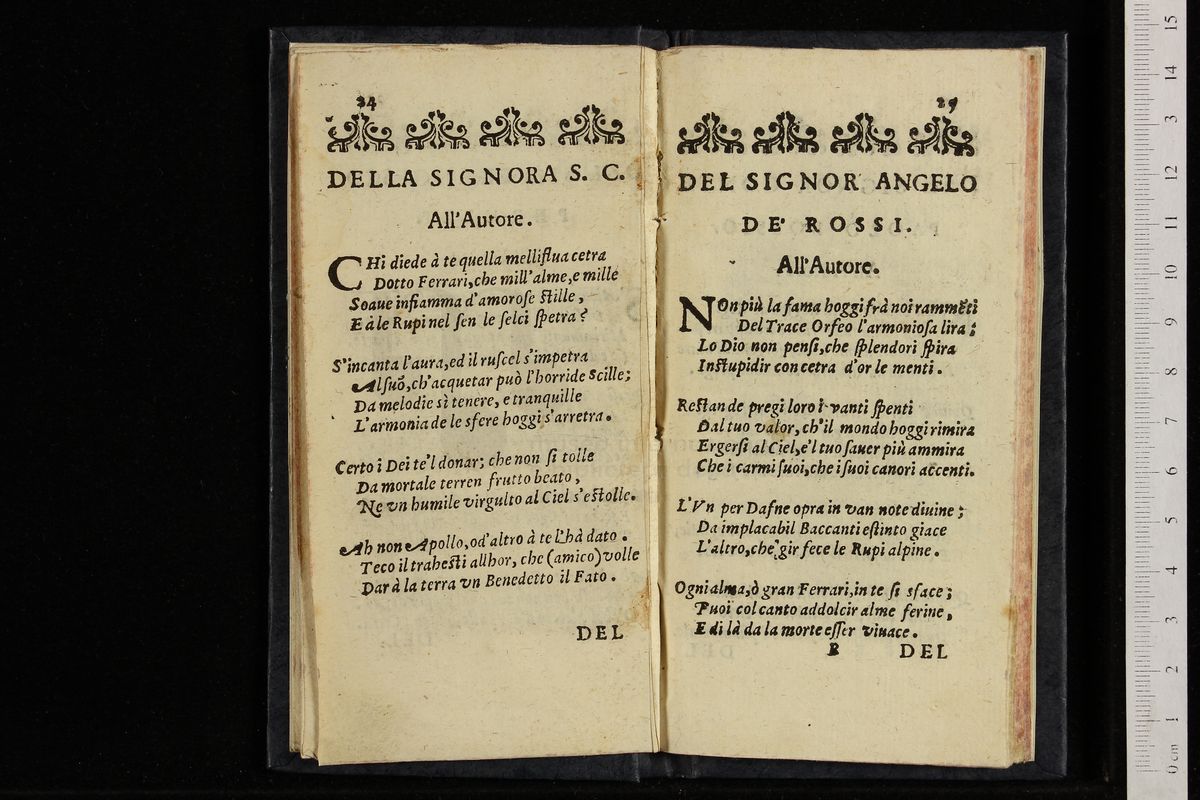 24
DELLA SIGNORA S. C.
All'Autore.
CHi diede à te quella melliflua cetra
Dotto Ferrari, che mill'alme, e mille
Soaue infiamma d'amorose stille,
E à le Rupi nel sen le selci spetra?
S'incanta l'aura, ed il ruscel s'impetra
Al suõ, ch'acquetar può l'horride Scille;
Da melodie sì tenere, e tranquille
L'armonia de le sfere hoggi s'arretra.
Certo i Dei te'l donar; che non si tolle
Da mortale terren frutto beato,
Ne vn humile virgulto al Ciel s'estolle.
Ah non Apollo, od'altro à te l'hà dato.
Teco il trahesti allhor, che (amico) volle
Dar à la terra vn Benedetto il Fato.
DEL
DEL SIGNOR ANGELO
DE' ROSSI.
All'Autore.
NOn più la fama hoggi frà noi rammẽti
Del Trace Orfeo l'armoniosa lira;
Lo Dio non pensi, che splendori spira
Instupidir con cetra d'or le menti.
Restan de pregi loro i vanti spenti
Dal tuo valor, ch'il mondo hoggi rimira
Ergersi al Ciel, e'l tuo sauer più ammira
Che i carmi suoi, che i suoi canori accenti.
L'Vn per Dafne opra in van note diuine;
Da implacabil Baccanti estinto giace
L'altro, che gir fece le Rupi alpine.
Ogni alma, ò gran Ferrari, in te si sface;
Puoi col canto addolcir alme ferine,
E di là da la morte esser viuace.
B DEL
0 cm 1 2 3 4 5 6 7 8 9 10 11 12 3 14 15